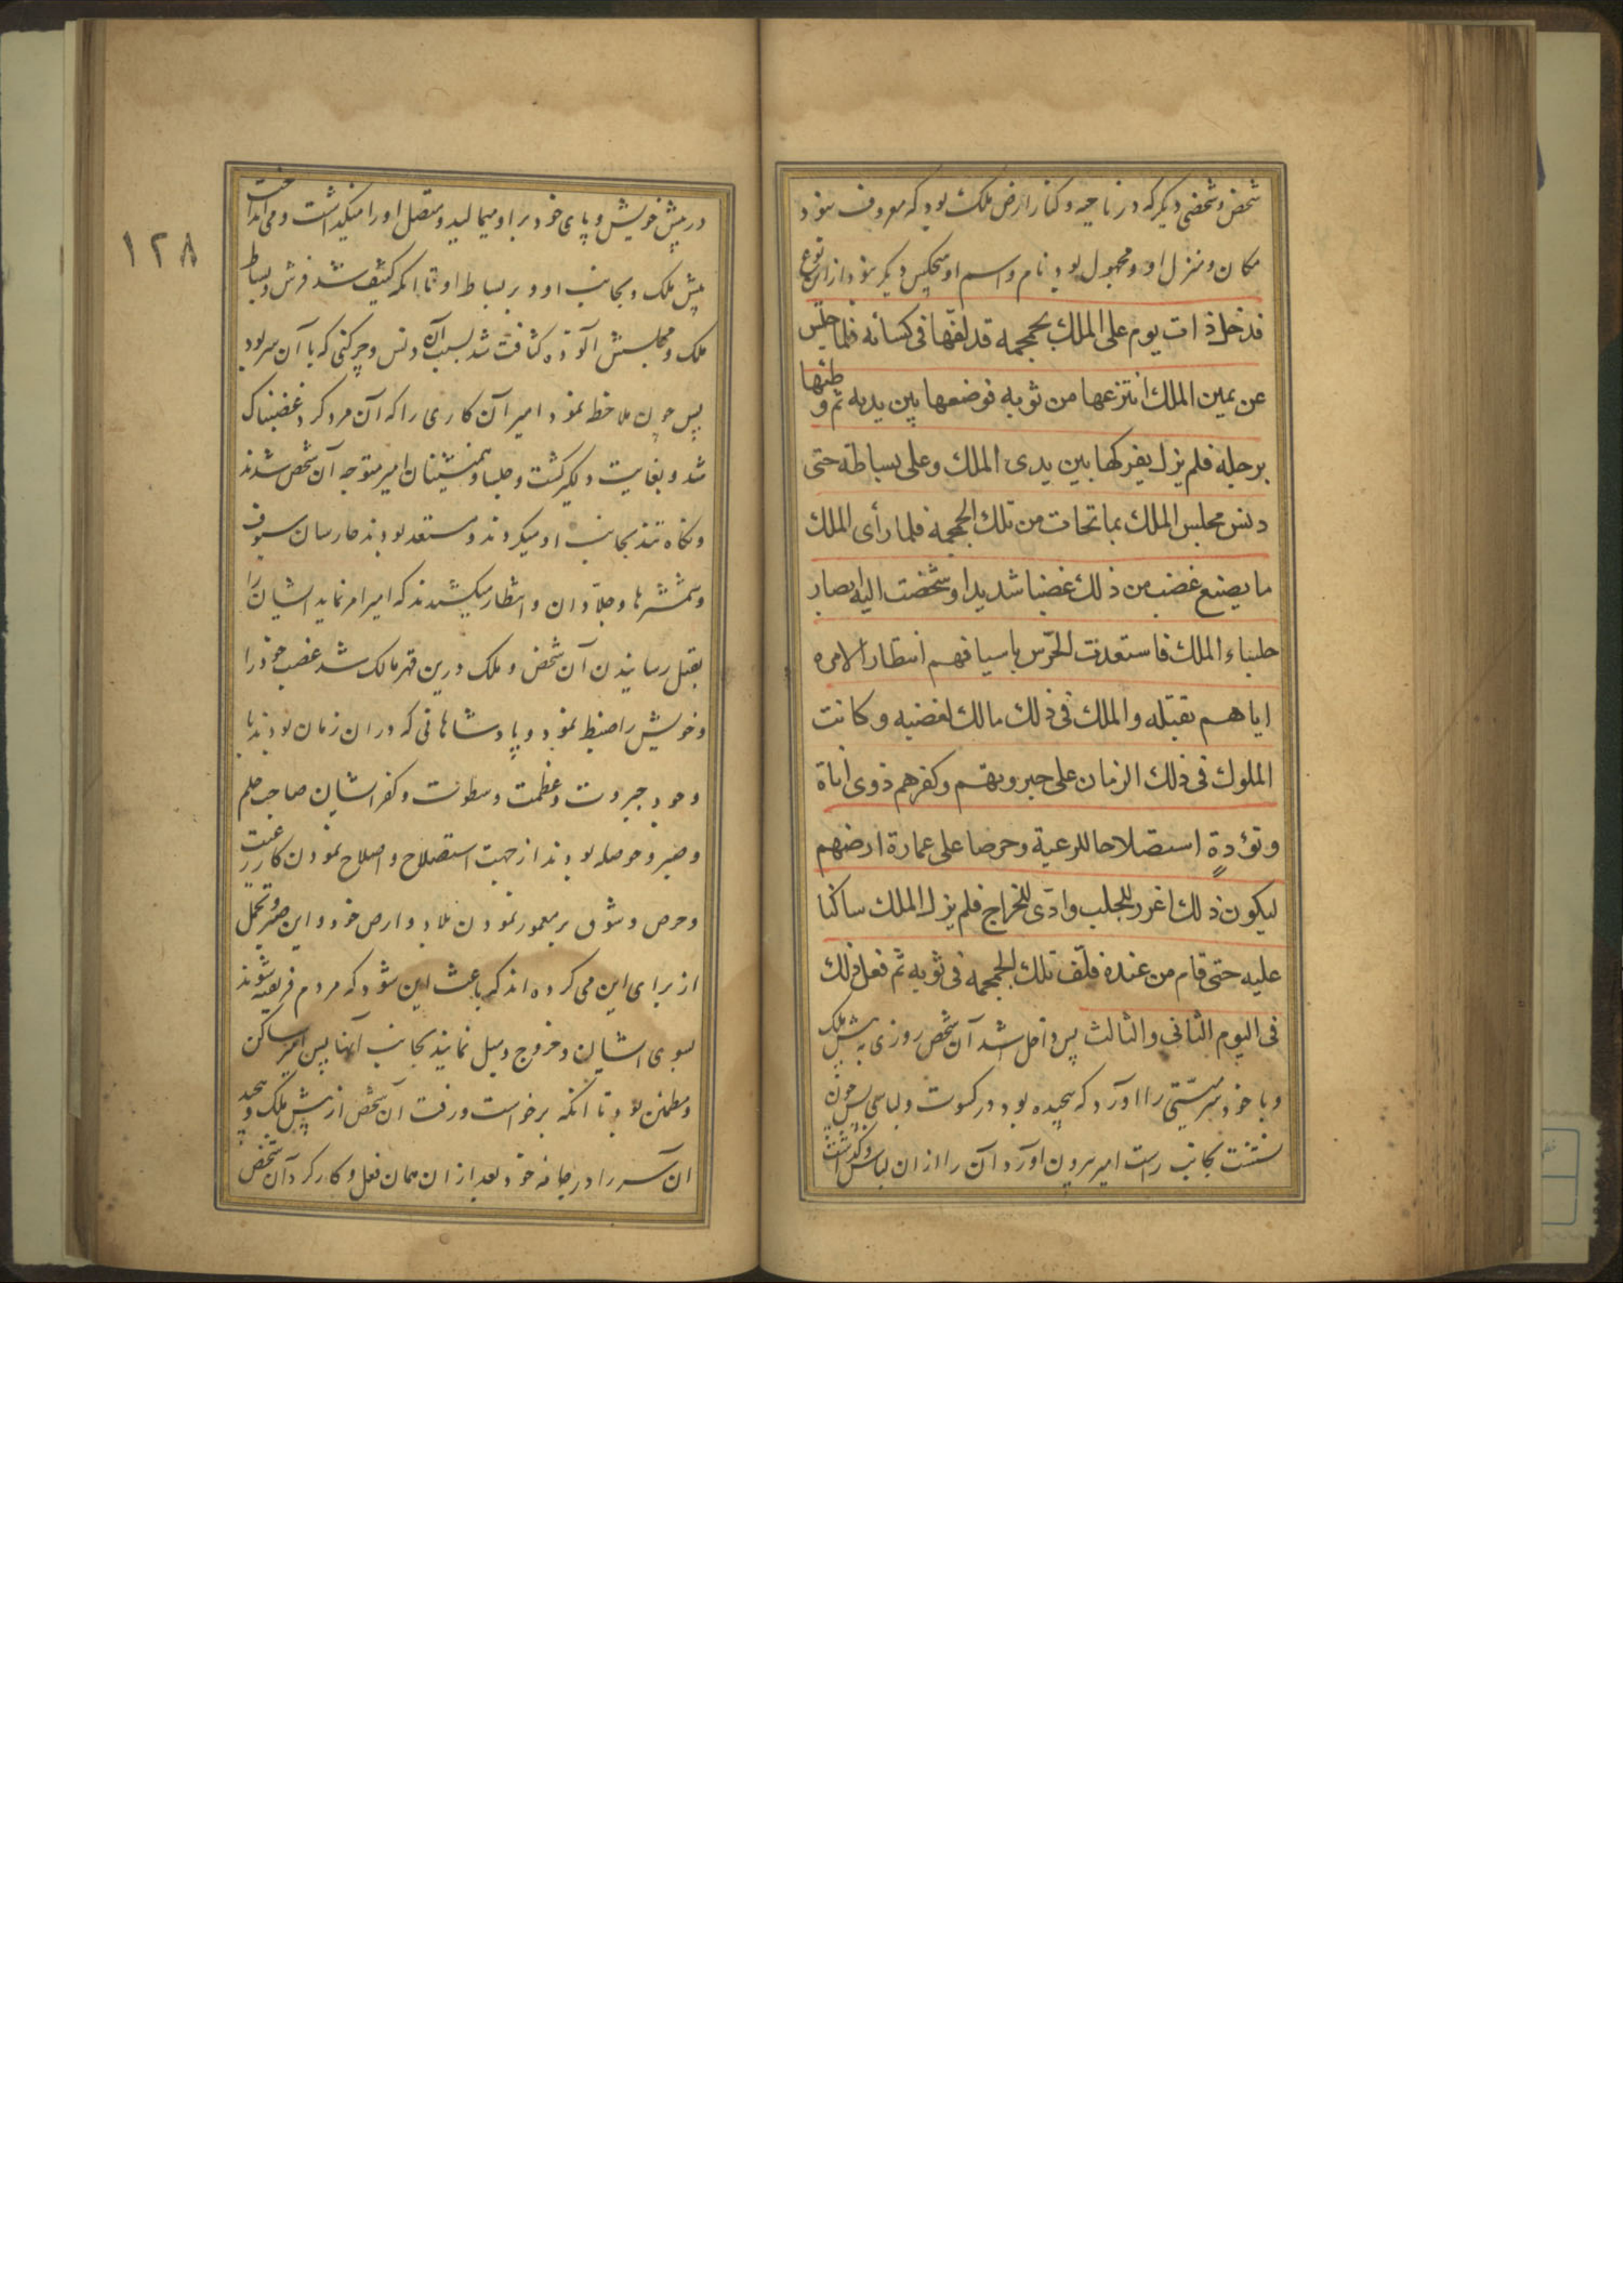 شخص و شخصی دیگر که در ناحیه و کنار ارض ملک بود که معروف نبود
مکان و منزل او و مجهول بود نام و اسم او هیچکس دیگر نبود ازان نوع
فدخل ذات یوم علی الملک بجمجمه قد لفّها فی کسائه فلما جلس
عن یمین الملک انتزعها من ثوبه فوضعها بین یدیه ثم وطئها
برجله فلم یزل یفرکها بین یدی الملک وعلی بساطه حتی
دنس مجلس الملک بما تحات من تلک الجمجمه فلما رأی الملک
ما یصنع غضب من ذلک غضبا شدیدا وشخصت الیه ابصار
جلساء الملک فاستعدت الحرس باسیافهم انتظارا لامره
ایاهم بقتله والملک فی ذلک مالک لغضبه وکانت
الملوک فی ذلک الزمان علی جبروتهم وکفرهم ذوی اناة
وتؤدةٍ استصلاحا للرعیة وحرصا علی عمارة ارضهم
لیکون ذلک اغرر للجلب وادّی للخراج فلم یزل الملک ساکتا
علیه حتی قام من عنده فلف تلک الجمجمه فی ثوبه ثم فعل ذلک
فی الیوم الثانی والثالث پس داخل شد آن شخص روزی به پیش ملک
و با خود سر میّتی را آورد که پیچیده بود در کسوت و لباسی پس چون
نشست بجانب راست امیر بیرون آورد آن را از ان لباس و گذاشت
در پیش خویش و پای خود بر او میمالید و متصل او را میگذاشت و می انداخت
پیش ملک و بجانب او و بر بساط او تا انکه کثیف شد فرش و بساط
ملک و مجلسش آلوده کثافت شد بسبب آن دنس و چرکی که با آن سر بود
پس چون ملاحظه نمود امیر آن کاری را که آن مرد کرد غضبناک
شد و بغایت دلگیر گشت و جلسا و همنشینان امیر متوجه آن شخص شدند
و نگاه تند بجانب او میکردند و مستعد بودند حارسان سیوف
و شمشیرها و جلّادان و انتظار میکشیدند که امیر امر نماید ایشان را
بقتل رسانیدن آن شخص و ملک درین قهر مالک شد غضب خود را
و خویش را ضبط نمود و پادشاهانی که در ان زمان بودند با
وجود جبروت و عظمت و سطوت و کفر ایشان صاحب حلم
و صبر و حوصله بودند از جهت استصلاح و اصلاح نمودن کار رعیت
و حرص و شوق بر معمور نمودن بلاد و ارض خود و این صبر و تحمل
از برای این می کرده اند که باعث این شود که مردم فریفته شوند
بسوی ایشان و خروج و میل نمایند بجانب آنها پس امیر ساکن
و مطمئن بود تا انکه برخواست و رفت آن شخص از پیش ملک و پیچید
ان سر را در جامه خود بعد از ان همان فعل و کار کرد آن شخص
١٢٨